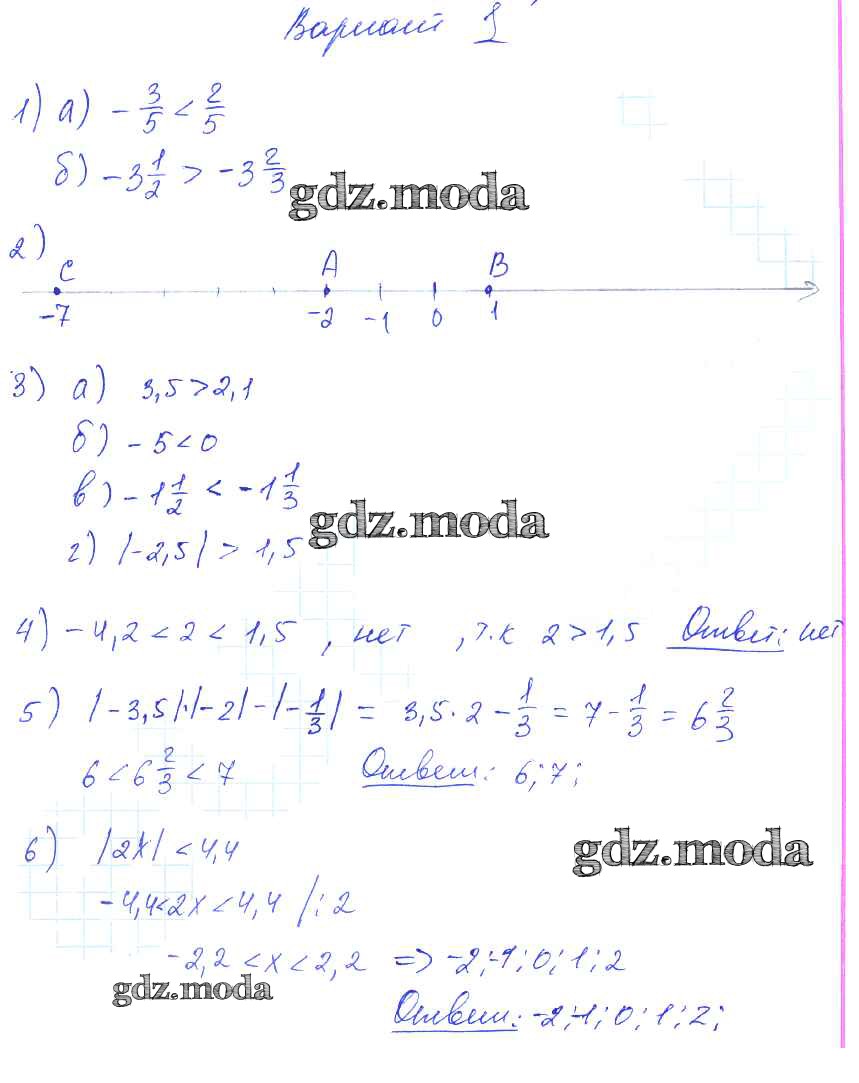 Вариант 1
1) а) -3/5 < 2/5
б) -3 1/2 > -3 2/3
gdz.moda
2)
C A B
-7 -2 -1 0 1
3) а) 3,5 > 2,1
б) -5 < 0
в) -1 1/2 < -1 1/3
gdz.moda
г) |-2,5| > 1,5
4) -4,2 < 2 < 1,5 , нет , т.к 2 > 1,5 Ответ: нет
5) |-3,5|·|-2|-|-1/3| = 3,5·2 - 1/3 = 7 - 1/3 = 6 2/3
6 < 6 2/3 < 7 Ответ: 6; 7;
gdz.moda
6) |2x| < 4,4
-4,4 < 2x < 4,4 |:2
-2,2 < x < 2,2 => -2; -1; 0; 1; 2
gdz.moda
Ответ: -2; -1; 0; 1; 2;